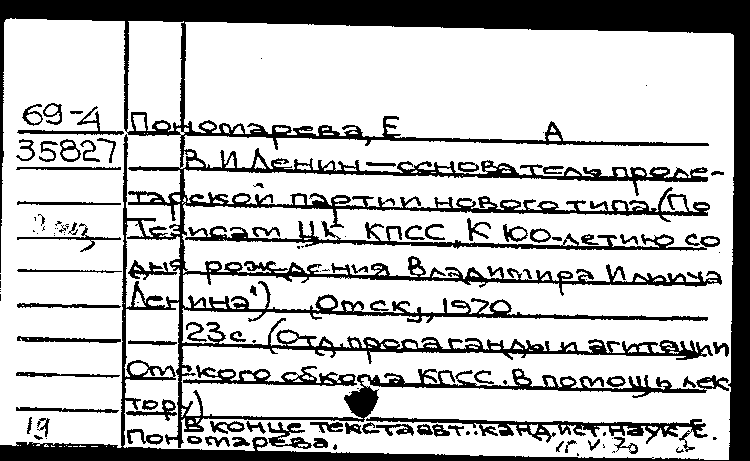 69-4
35827
Пономарева, Е А
В. И Ленин — основатель проле-
тарской партии нового типа. (По
Тезисам ЦК КПСС „К 100-летию со
дня рождения Владимира Ильича
Ленина") [Омск], 1970.
23с. (Отд. пропаганды и агитации
Омского обкома КПСС. В помощь лек-
тору).
В конце текста авт.: канд. ист. наук, Е.
Пономарева.
19